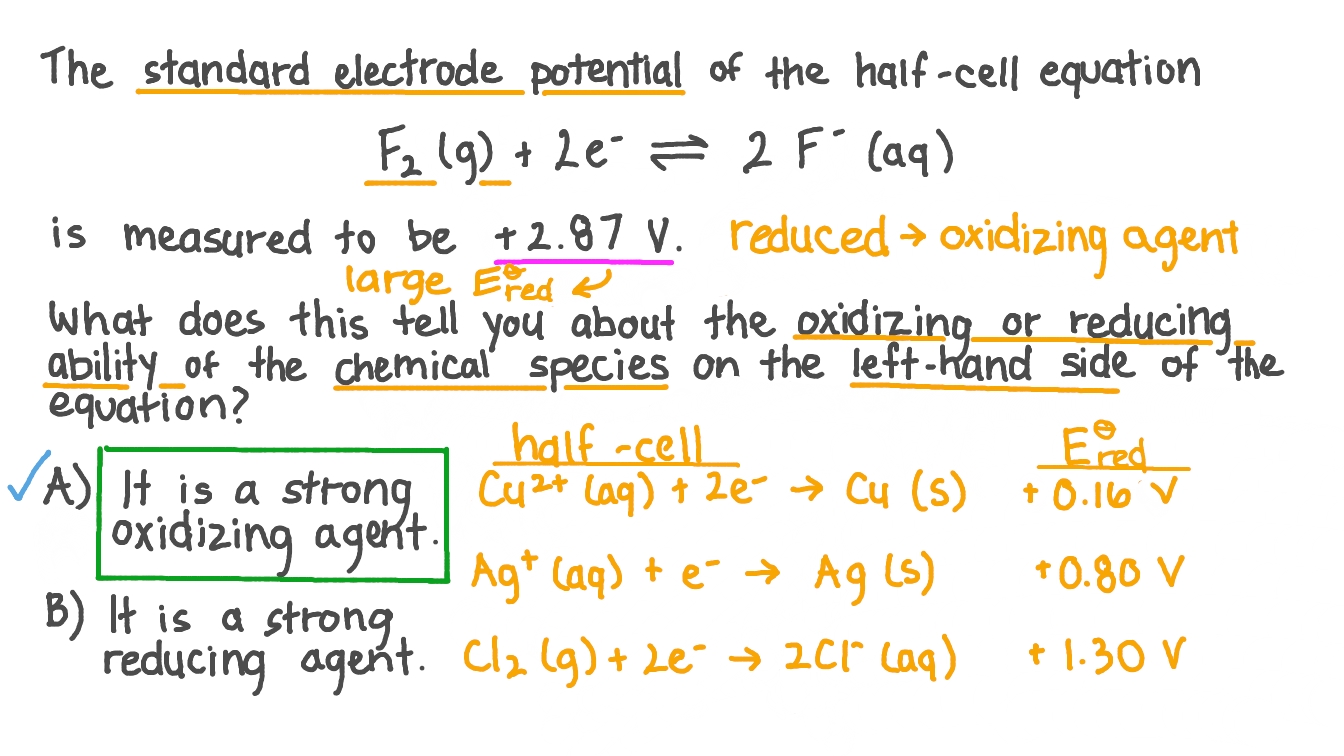 The standard electrode potential of the half-cell equation
F₂ (g) + 2e⁻ ⇌ 2 F⁻ (aq)
is measured to be +2.87 V. reduced → oxidizing agent
large E⦵red ↙
What does this tell you about the oxidizing or reducing
ability of the chemical species on the left-hand side of the
equation?
half-cell E⦵red
✓A) It is a strong
oxidizing agent.
Cu²⁺ (aq) + 2e⁻ → Cu (s) +0.16 V
Ag⁺ (aq) + e⁻ → Ag (s) +0.80 V
B) It is a strong
reducing agent.
Cl₂ (g) + 2e⁻ → 2Cl⁻ (aq) + 1.30 V